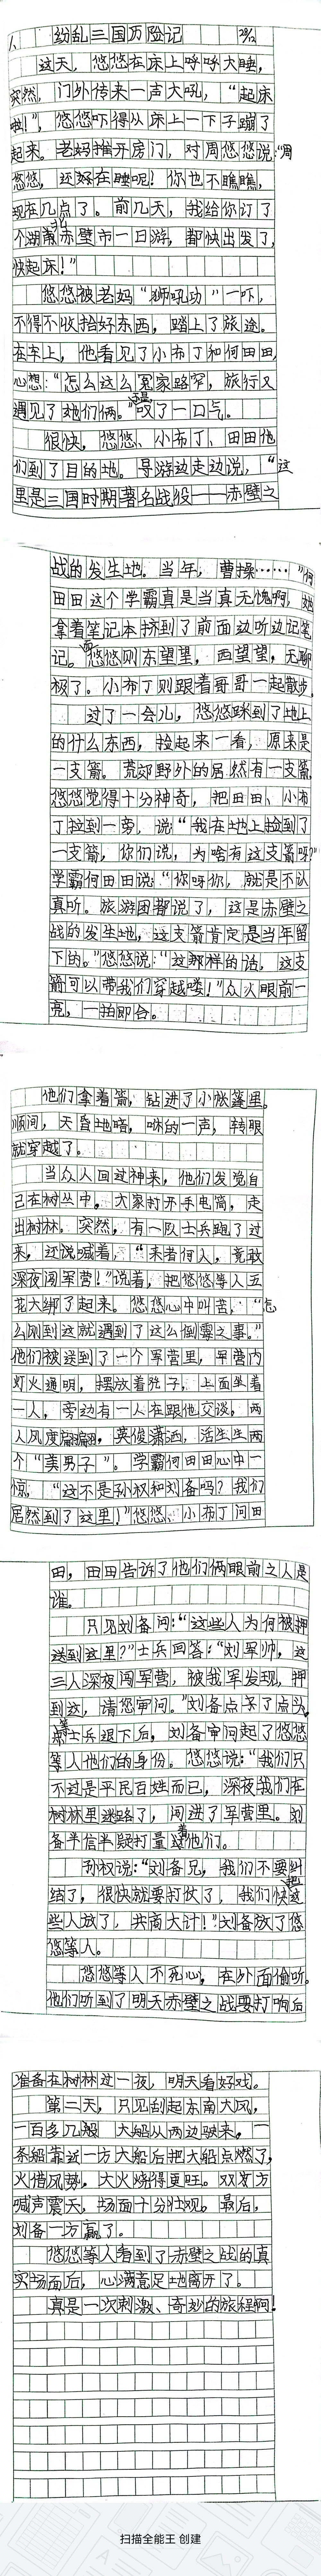 八、纷乱三国历险记 29/12
这天，悠悠在床上呼呼大睡，
突然，门外传来一声大吼，“起床
啦！”，悠悠吓得从床上一下子蹦了
起来。老妈推开房门，对周悠悠说：“周
悠悠，还好在睡呢！你也不瞧瞧，
现在几点了。前几天，我给你订了
个湖北赤壁市一日游，都快出发了，
快起床！”
悠悠被老妈“狮吼功”一吓，
不得不收拾好东西，踏上了旅途。
在车上，他看见了小布丁和何田田，
心想：“怎么这么冤家路窄，旅行又
遇见了她们俩。”还是叹了一口气。
很快，悠悠、小布丁、田田他
们到了目的地。导游边走边说，“这
里是三国时期著名战役——赤壁之
战的发生地。当年，曹操……”何
田田这个学霸真是当真无愧啊，她
拿着笔记本挤到了前面边听边记笔
记。而悠悠则东望望，西望望，无聊
极了。小布丁则跟着哥哥一起散步。
过了一会儿，悠悠踩到了地上
的什么东西，捡起来一看，原来是
一支箭。荒郊野外的居然有一支箭，
悠悠觉得十分神奇，把田田、小布
丁拉到一旁，说：“我在地上捡到了
一支箭，你们说，为啥有这支箭呀？”
学霸何田田说：“你呀你，就是不认
真听。旅游团都说了，这是赤壁之
战的发生地，这支箭肯定是当年留
下的。”悠悠说：“这那样的话，这支
箭可以带我们穿越喽！”众人眼前一
亮，一拍即合。
他们拿着箭，钻进了小帐篷里。
顺间，天昏地暗，咻的一声，转眼
就穿越了。
当众人回过神来，他们发觉自
己在树丛中。大家打开手电筒，走
出树林。突然，有一队士兵跑了过
来，还说喊着，“来者何人，竟敢
深夜闯军营！”说着，把悠悠等人五
花大绑了起来。悠悠心中叫苦，“怎
么刚到这就遇到了这么倒霉之事。”
他们被送到了一个军营里，军营内
灯火通明，摆放着凳子，上面坐着
一人，旁边有一人在跟他交谈，两
人风度翩翩，英俊潇洒，活生生两
个“美男子”。学霸何田田心中一
惊，“这不是孙权和刘备吗？我们
居然到了这里！”悠悠、小布丁问田
田，田田告诉了他们俩眼前之人是
谁。
只见刘备问：“这些人为何被押
送到这里？”士兵回答：“刘军帅，这
三人深夜闯军营，被我军发现，押
到这，请您审问。”刘备点了点头。
等士兵退下后，刘备审问起了悠悠
等人他们的身份。悠悠说：“我们只
不过是平民百姓而已，深夜我们在
树林里迷路了，闯进了军营里。刘
备半信半疑打量着他们。
孙权说：“刘备兄，我们不要纠
结了，很快就要打仗了，我们快把这
些人放了，共商大计！”刘备放了悠
悠等人。
悠悠等人不死心，在外面偷听。
他们听到了明天赤壁之战要打响后
准备在树林过一夜，明天看好戏。
第二天，只见刮起东南大风，
一百多几艘 大船从两边驶来，一
条船靠近一方大船后把大船点燃了，
火借风势，大火烧得更旺。双方
喊声震天，场面十分壮观。最后，
刘备一方赢了。
悠悠等人看到了赤壁之战的真
实场面后，心满意足地离开了。
真是一次刺激、奇妙的旅程啊！
扫描全能王 创建